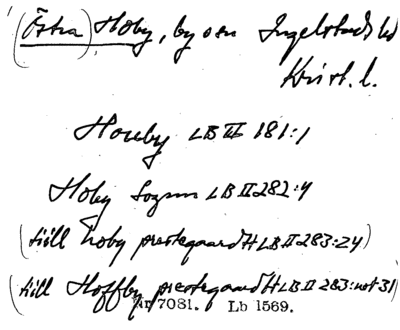 (Östra) Hoby, by o sn Ingelstads hd
Krist. l.
Houby LB II 181:1
Hoby Sognn LB II 282:4
(till Hoby prestegaard H LB II 283:24)
(till Hoffby prestegaard H LB II 283: not 31)
Nr 7081. Lb 1569.